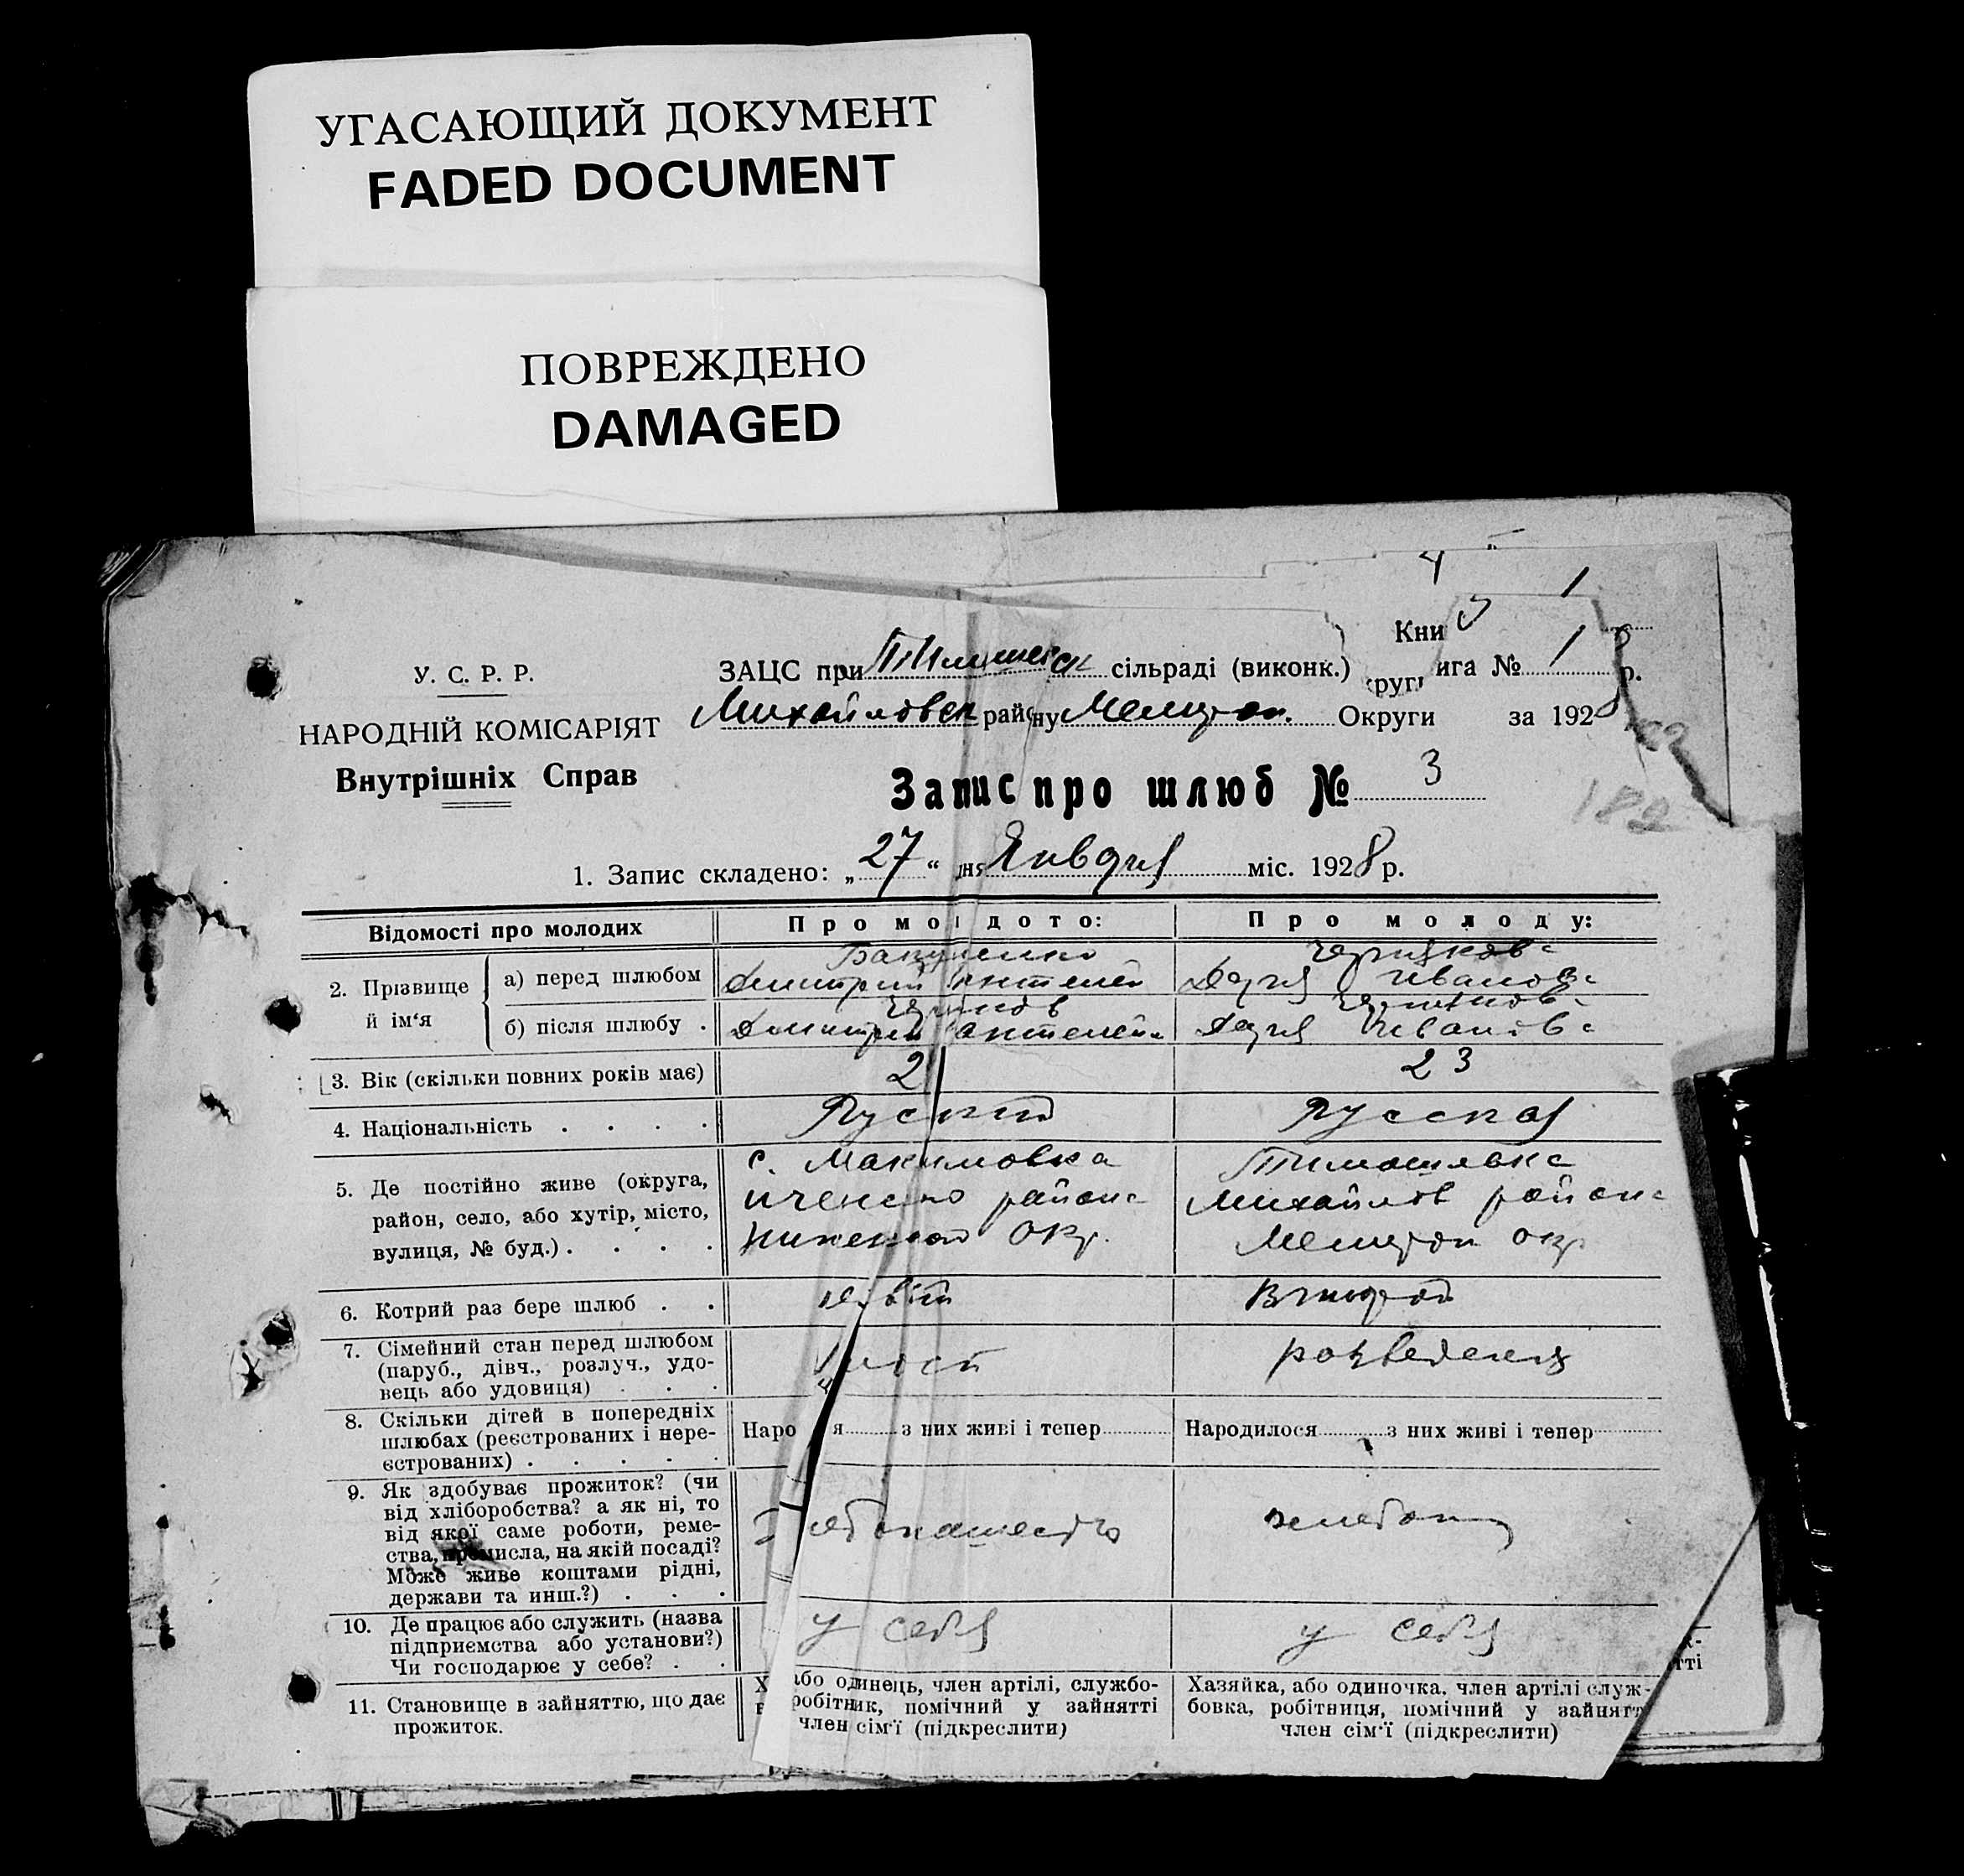 УГАСАЮЩИЙ ДОКУМЕНТ
FADED DOCUMENT
ПОВРЕЖДЕНО
DAMAGED
У. С. Р. Р.
НАРОДНІЙ КОМІСАРІЯТ
Внутрішніх Справ
Кни
ЗАЦС при сільраді (виконк.) ига № 1 р.
Михайловск району Мелитоп. Округи за 1928
Запис про шлюб № 3
182
1. Запис складено: „27“ дня Января міс. 1928 р.
Відомості про молодих
Про молодого:
Про молоду:
2. Прізвище й ім'я
а) перед шлюбом
Дмитрий
Дарья Иванова
б) після шлюбу .
Дмитрий
Дарья Иванова
3. Вік (скільки повних років має)
2
23
4. Національність . . . .
Руский
Русская
5. Де постійно живе (округа,
район, село, або хутір, місто,
вулиця, № буд.) . . . .
с. Максимовка
района
окр.
Тимошевка
Михайлов района
Мелитоп окр
6. Котрий раз бере шлюб . .
первый
Второй
7. Сімейний стан перед шлюбом
(паруб., дівч., розлуч., удо-
вець або удовиця) . . .
холост
розведеная
8. Скільки дітей в попередніх
шлюбах (реєстрованих і нере-
єстрованих) . . . . .
Наро я з них живі і тепер
Народилося з них живі і тепер
9. Як здобуває прожиток? (чи
від хліборобства? а як ні, то
від якої саме роботи, реме-
ства, промисла, на якій посаді?
Може живе коштами рідні,
держави та инш.?) . . .
10. Де працює або служить (назва
підприємства або установи?)
Чи господарює у себе? . .
у себя
у себя
11. Становище в зайняттю, що дає
прожиток.
Х або одинець, член артілі, службо-
в робітник, помічний у зайнятті
член сім'ї (підкреслити)
Хазяйка, або одиночка, член артілі служ-
бовка, робітниця, помічний у зайнятт
член сім'ї (підкреслити)